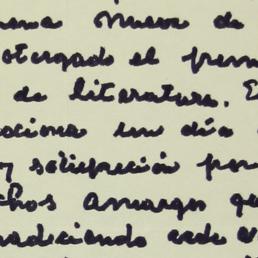 ema nueva de
otorgado el prem
de literatura. E
ociona un día
y satisfacción por
chos amargos qu
radeciendo cada v